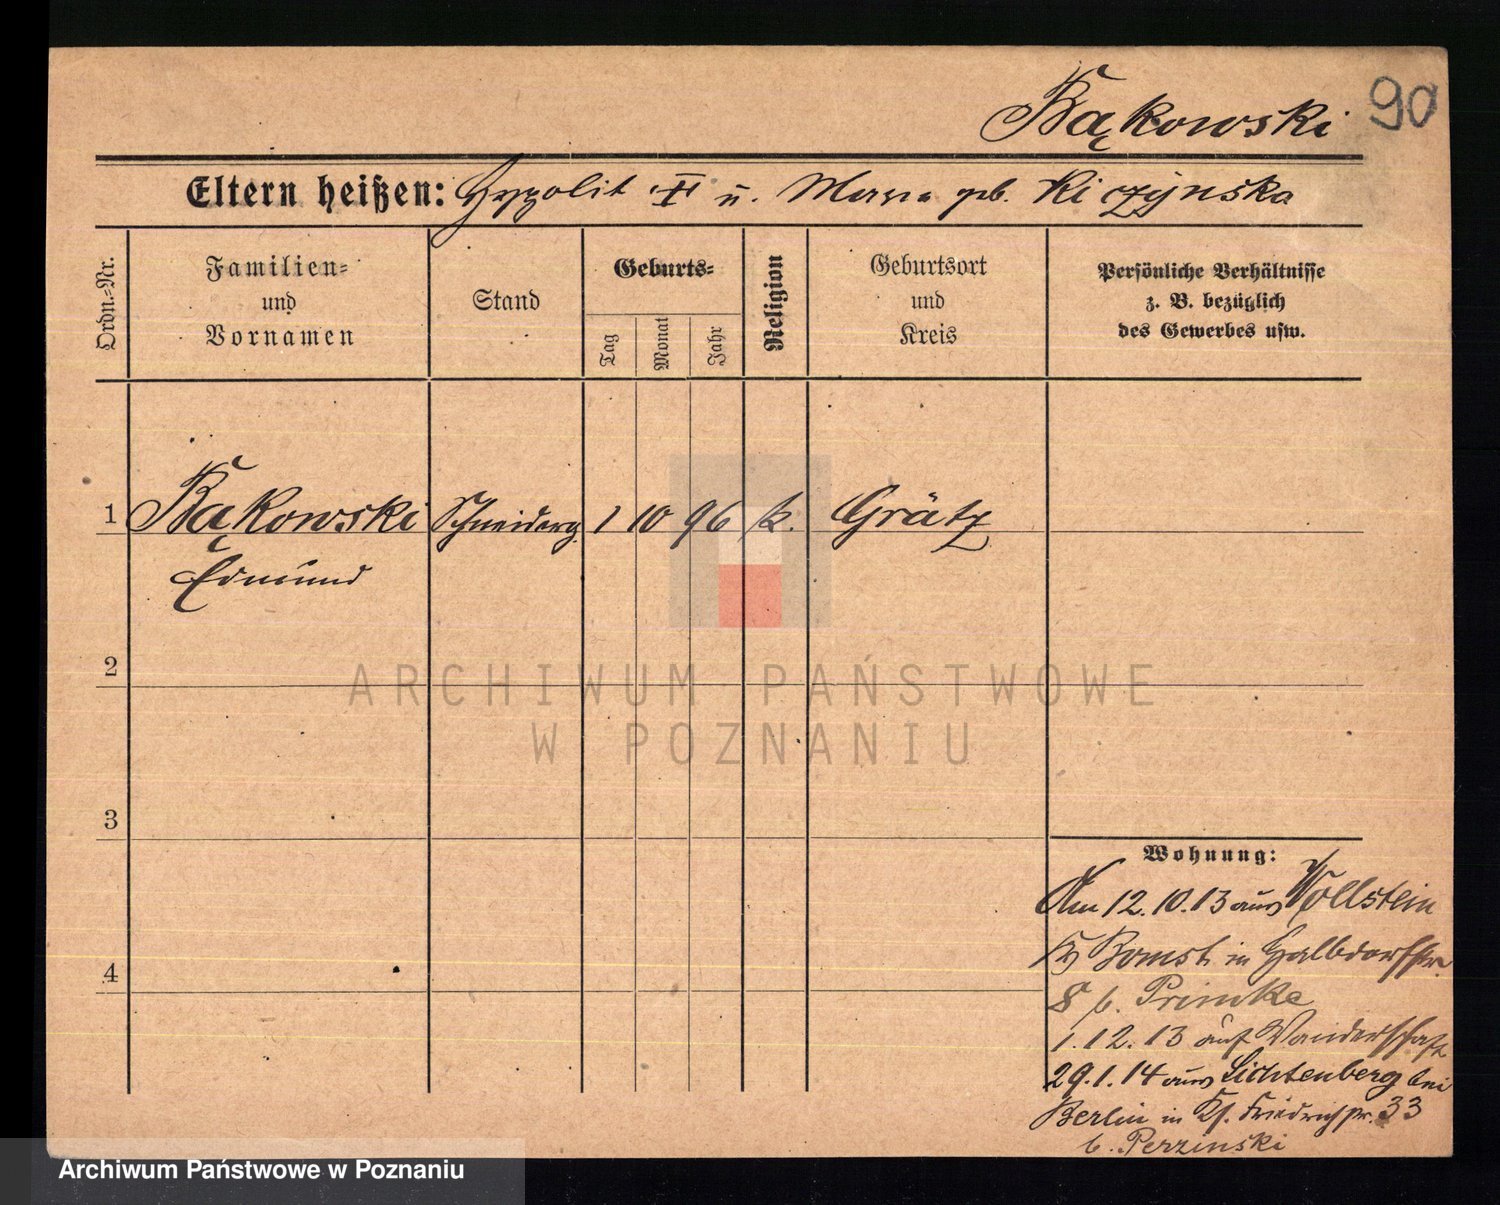 Bąkowski 90
Eltern heißen: Hyppolit † u. Marya geb. Kiczynska
Ordn.-Nr.
Familien-
und
Vornamen
Stand
Geburts-
Tag
Monat
Jahr
Religion
Geburtsort
und
Kreis
Persönliche Verhältnisse
z. B. bezüglich
des Gewerbes usw.
1 Bąkowski Schneiderg. 1 10 96 k. Grätz
Edmund
2
3
4
Wohnung:
Am 12.10.13 aus Wollstein
Bomst in Halbdorfstr.
8 b. Primke
1.12.13 auf Wanderschaft
29.1.14 aus Lichtenberg bei
Berlin in Kl. Friedrichstr. 33
b. Perzinski
ARCHIWUM PAŃSTWOWE
W POZNANIU
Archiwum Państwowe w Poznaniu